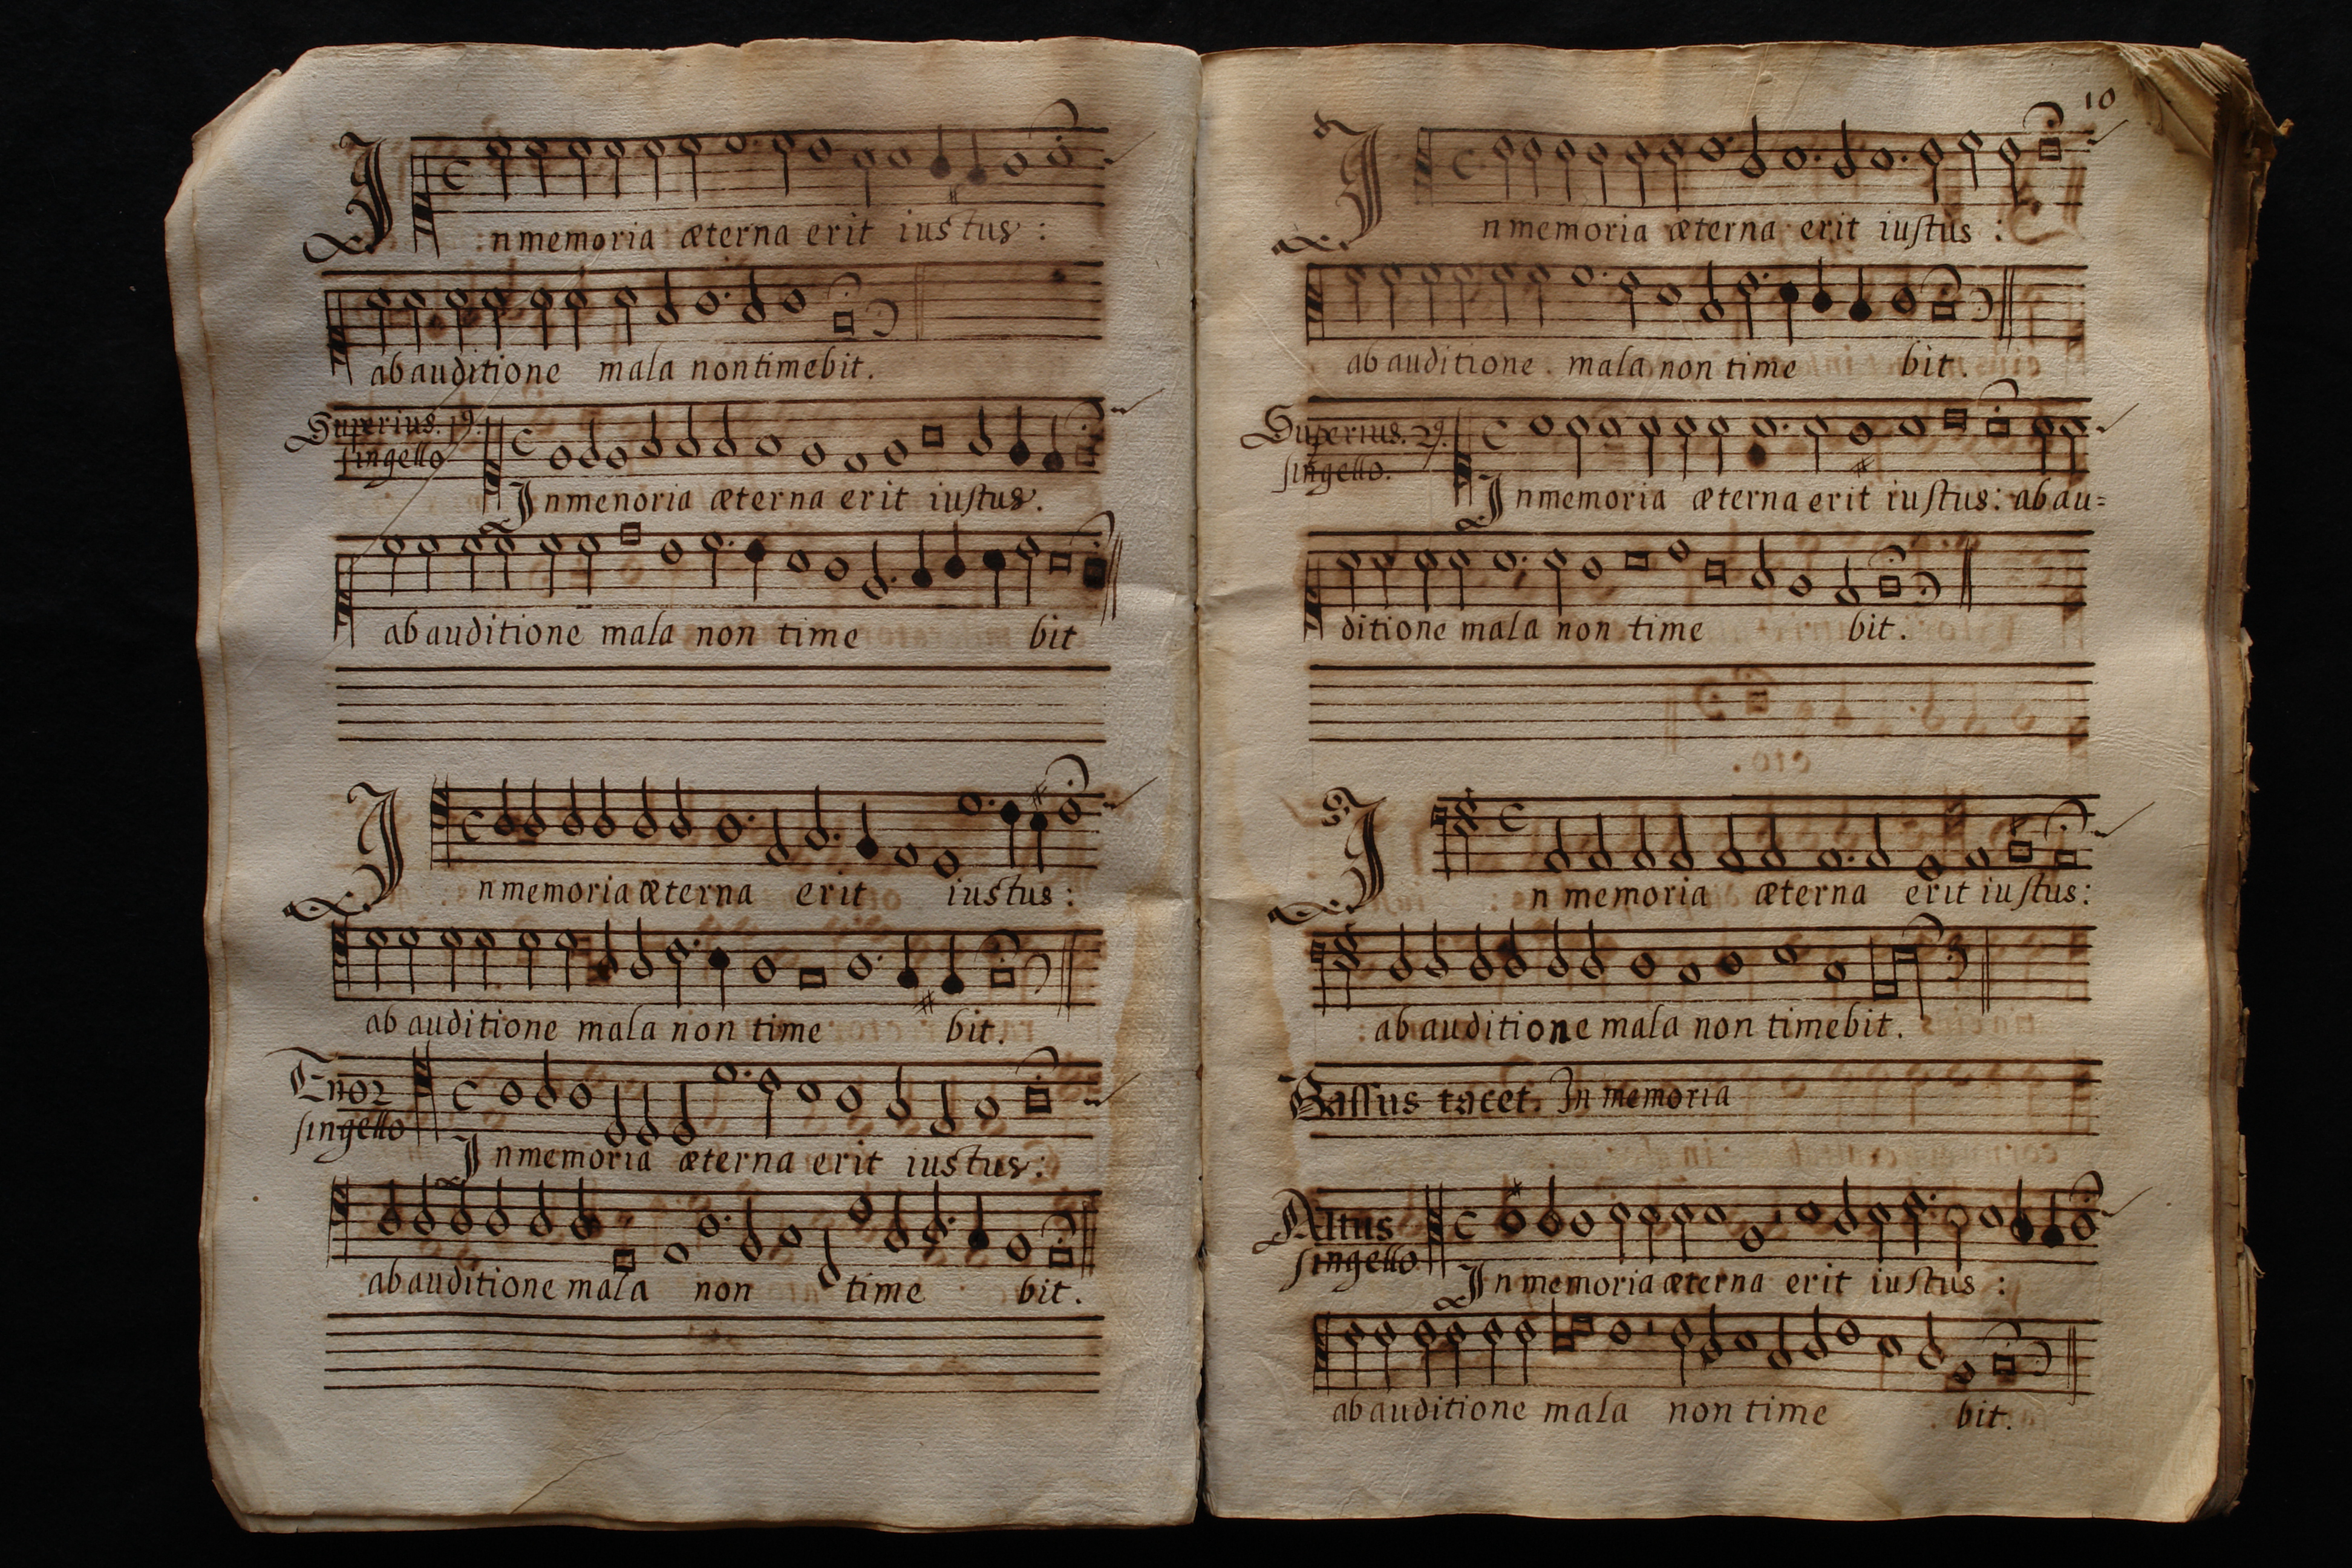 I
nmemoria æterna erit iustus :
abauditione mala nontimebit.
Superius. 1º.
singello
Inmenoria æterna erit iustus.
abauditione mala non time bit
I
nmemoria æterna erit iustus :
ab auditione mala non time bit.
Tenor
singello
Inmemoria æterna erit iustus :
abauditione mala non time bit.
10
I
nmemoria æterna erit iustus :
ab auditione mala non time bit.
Superius. 2º.
singello.
Inmemoria æterna erit iustus: abau=
ditione mala non time bit.
I
n memoria æterna erit iustus:
ab auditione mala non timebit.
Bassus tacet. In memoria
Altus
singello
Inmemoria æterna erit iustus :
abauditione mala non time bit.